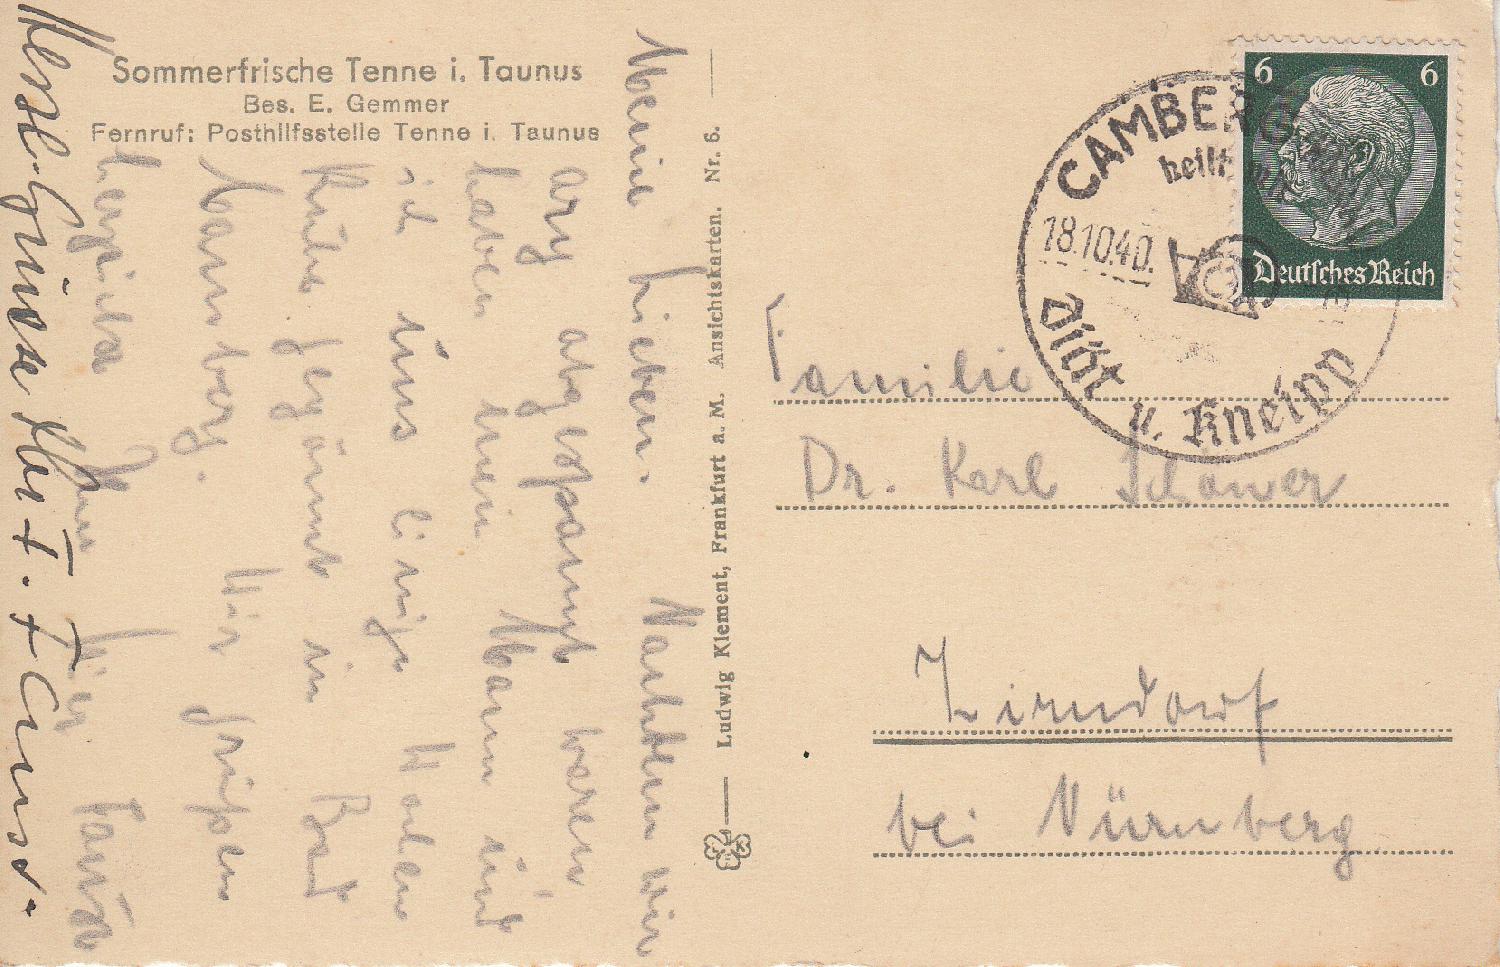 Sommerfrische Tenne i. Taunus
Bes. E. Gemmer
Fernruf: Posthilfsstelle Tenne i. Taunus
Meine Lieben. Nachdem wir
arg abgespannt waren
haben mein Mann und
ich uns einige Wochen
Ruhe gegönnt in Bad
Camberg. Wir grüssen
herzlichst Ihre
Herzl. Grüsse
Ludwig Klement, Frankfurt a. M. Ansichtskarten. Nr. 6.
CAMBERG
heilt mit
18.10.40.
Diät u. Kneipp
6 6
Deutsches Reich
Familie
Dr. Karl
Zirndorf
bei Nürnberg